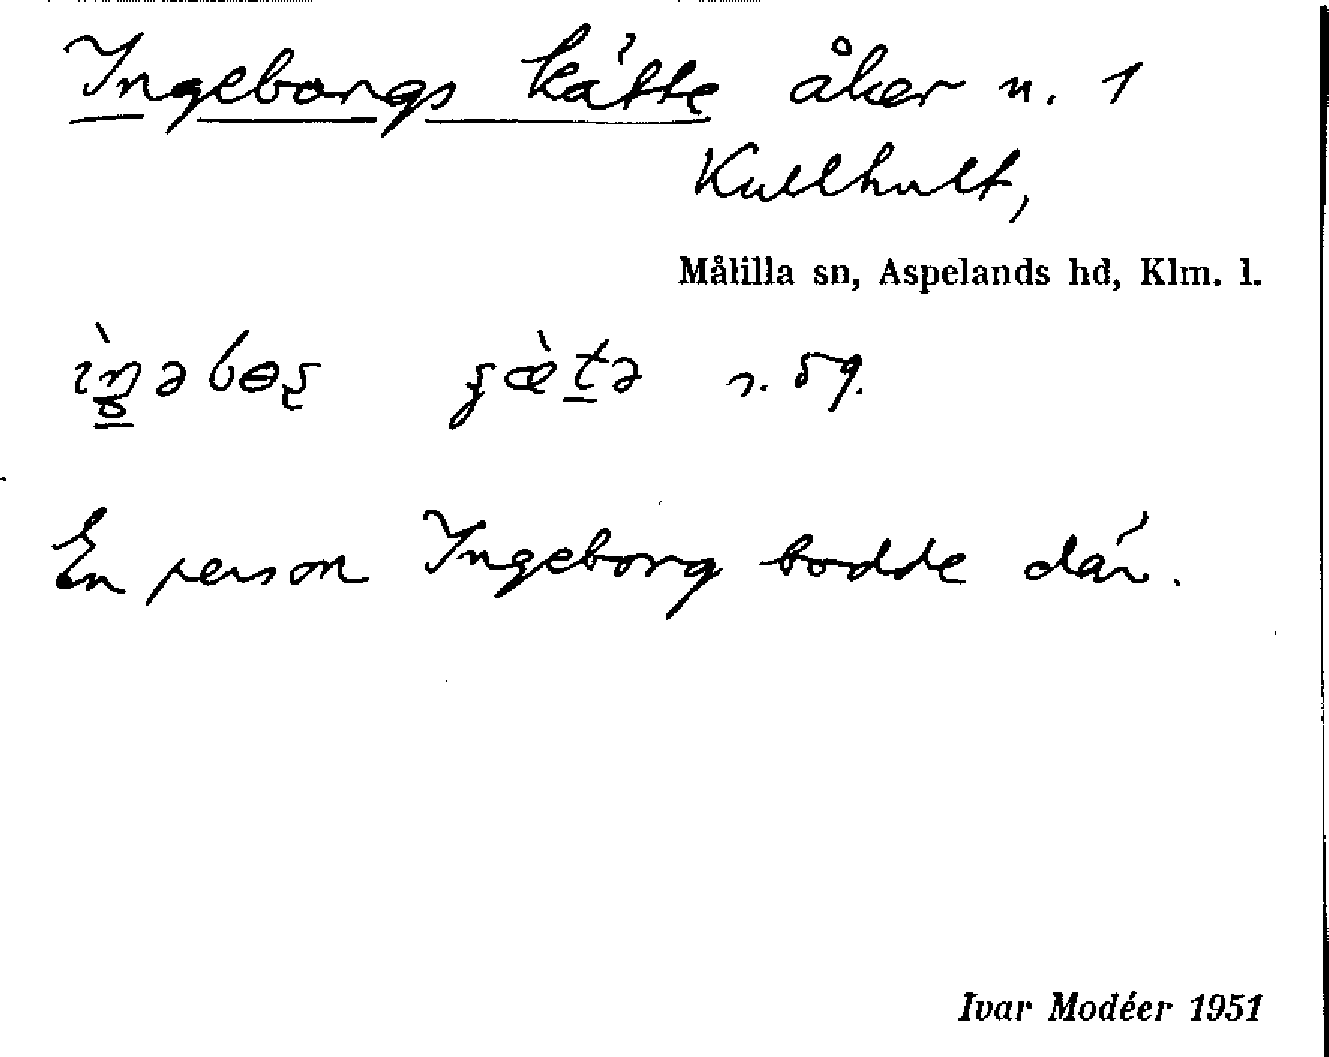 Ingeborgs kätte åker n. 1
Kullhult,
Målilla sn, Aspelands hd, Klm. l.
En person Ingeborg bodde där.
Ivar Modéer 1951